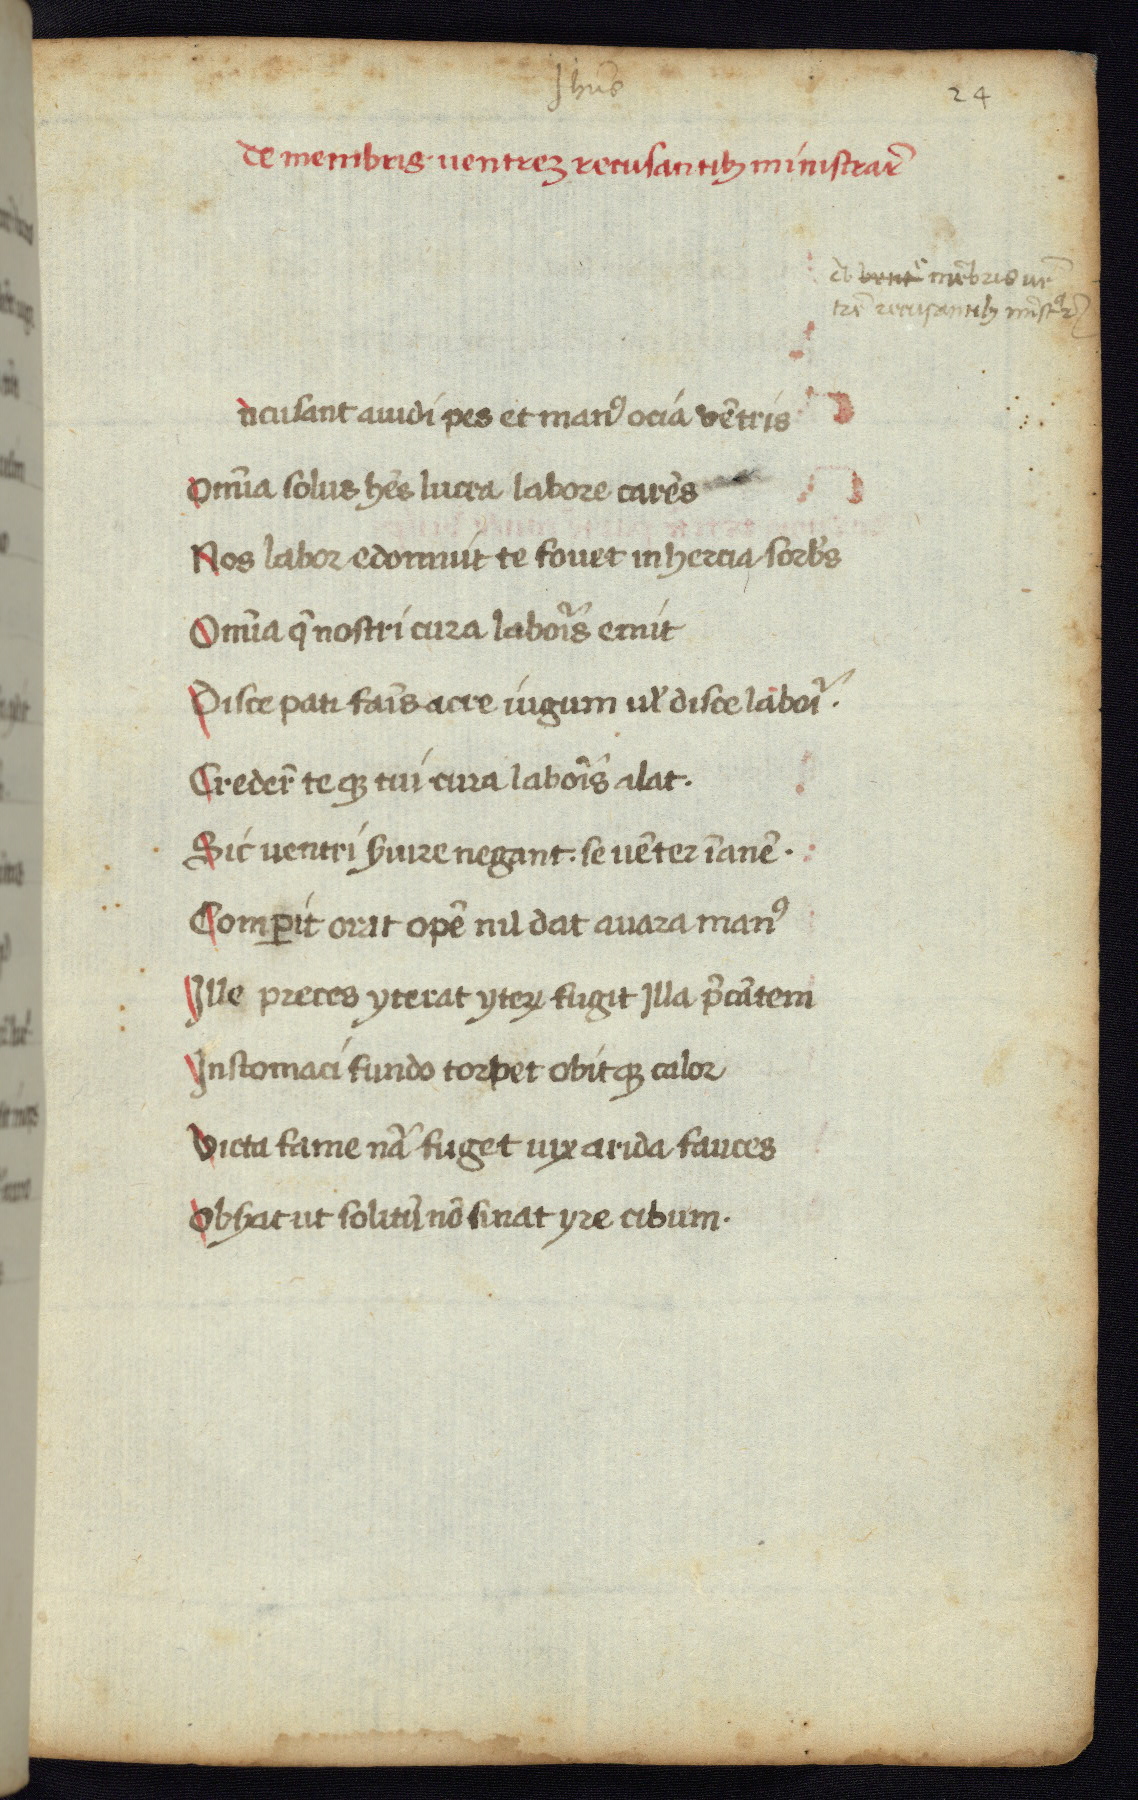 Jhūs
24
de membris uentrē recusantibꝫ ministrar̄
de uent mēbris uē
trē recusantibꝫ minist̄r̄
ncusant auidi pes et manꝰ ocia vētris
Omīa solus hēs lucra labore carēs
Nos labor edomuit te fouet inhercia sorbēs
Omīa q̄ nostri cura laboīs emit
Disce pati faīs acre iugum uł disce laboī.
Creder̄ te qꝫ tui cura laboīs alat.
Sic uentri ẜuire negant. se uēter īanē.
Comꝑit orat opē nil dat auara manꝰ
Ille preces yterat yteꝝ fugit Illa p̄cātem
In stomaci fundo torpet obitqꝫ calor
Victa fame nāᵃ fuget uix arida fauces
Obẜat ut solitū nō sinat yre cibum.